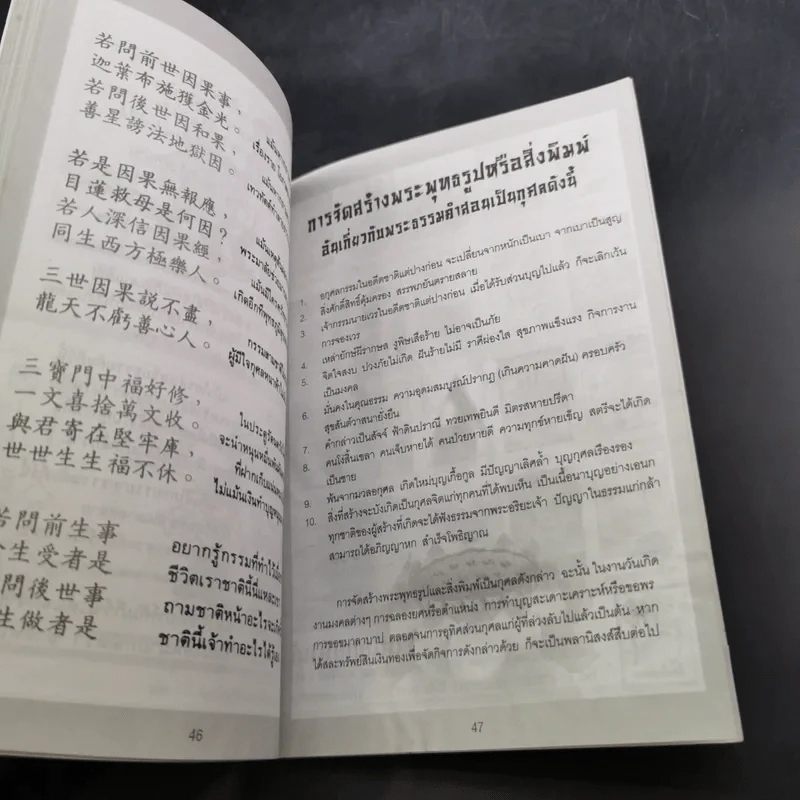 若問前世因果事，
迦葉布施獲金光。
若問後世因和果，
善星謗法地獄因。
若是因果無報應，
目蓮救母是何因？
若人深信因果經，
同生西方極樂人。
三世因果說不盡，
龍天不虧善心人。
三寶門中福好修，
一文喜捨萬文收。
與君寄在堅牢庫，
世世生生福不休。
若問前生事
生受者是
問後世事
生做者是
อยากรู้กรรมที่ทำไว้
ชีวิตเราชาตินี้นี่แหละ
ถามชาติหน้าอะไรจะ
ชาตินี้เจ้าทำอะไรได้
ในประตู
จะนำหนุน
ที่ฝากเก็บ
ไม่แม้นเงินทำบุญ
46
การจัดสร้างพระพุทธรูปหรือสิ่งพิมพ์
อันเกี่ยวกับพระธรรมคำสอนเป็นกุศลดังนี้
1. อกุศลกรรมในอดีตชาติแต่ปางก่อน จะเปลี่ยนจากหนักเป็นเบา จากเบาเป็นสูญ
2. สิ่งศักดิ์สิทธิ์คุ้มครอง สรรพภยันตรายสลาย
3 เจ้ากรรมนายเวรในอดีตชาติแต่ปางก่อน เมื่อได้รับส่วนบุญไปแล้ว ก็จะเลิกเว้น
การจองเวร
4. เหล่ายักษ์ผีรากษส งูพิษเสือร้าย ไม่อาจเป็นภัย
5. จิตใจสงบ ปวงภัยไม่เกิด ฝันร้ายไม่มี ราศีผ่องใส สุขภาพแข็งแรง กิจการงาน
เป็นมงคล
6. มั่นคงในคุณธรรม ความอุดมสมบูรณ์ปรากฏ (เกินความคาดฝัน) ครอบครัว
สุขสันต์วาสนายั่งยืน
7. คำกล่าวเป็นสัจจ์ ฟ้าดินปราณี ทวยเทพยินดี มิตรสหายปรีดา
8. คนโง่สิ้นเขลา คนเจ็บหายได้ คนป่วยหายดี ความทุกข์หายเข็ญ สตรีจะได้เกิด
เป็นชาย
9. พ้นจากมวลอกุศล เกิดใหม่บุญเกื้อกูล มีปัญญาเลิศล้ำ บุญกุศลเรืองรอง
10. สิ่งที่สร้างจะบังเกิดเป็นกุศลจิตแก่ทุกคนที่ได้พบเห็น เป็นเนื้อนาบุญอย่างเอนก
ทุกชาติของผู้สร้างที่เกิดจะได้ฟังธรรมจากพระอริยะเจ้า ปัญญาในธรรมแก่กล้า
สามารถได้อภิญญาหก สำเร็จโพธิญาณ
การจัดสร้างพระพุทธรูปและสิ่งพิมพ์เป็นกุศลดังกล่าว ฉะนั้น ในงานวันเกิด
งานมงคลต่างๆ การฉลองยศหรือตำแหน่ง การทำบุญสะเดาะเคราะห์หรือขอพร
การขอขมาลาบาป ตลอดจนการอุทิศส่วนกุศลแก่ผู้ที่ล่วงลับไปแล้วเป็นต้น หาก
ได้สละทรัพย์สินเงินทองเพื่อจัดกิจการดังกล่าวด้วย ก็จะเป็นพลานิสงส์สืบต่อไป
47